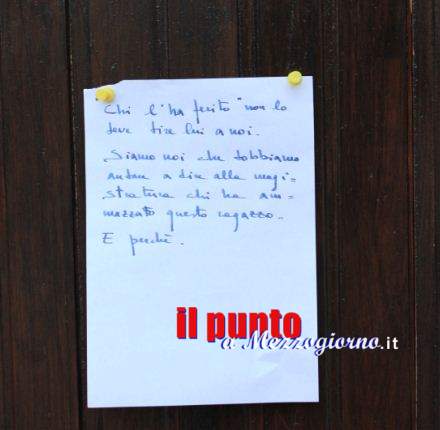 Chi l'ha ferito "non lo
deve dire lui a noi.
Siamo noi che dobbiamo
andare a dire alla magi=
stratura chi ha am=
mazzato questo ragazzo.
E perchè.
il punto
a Mezzogiorno.it